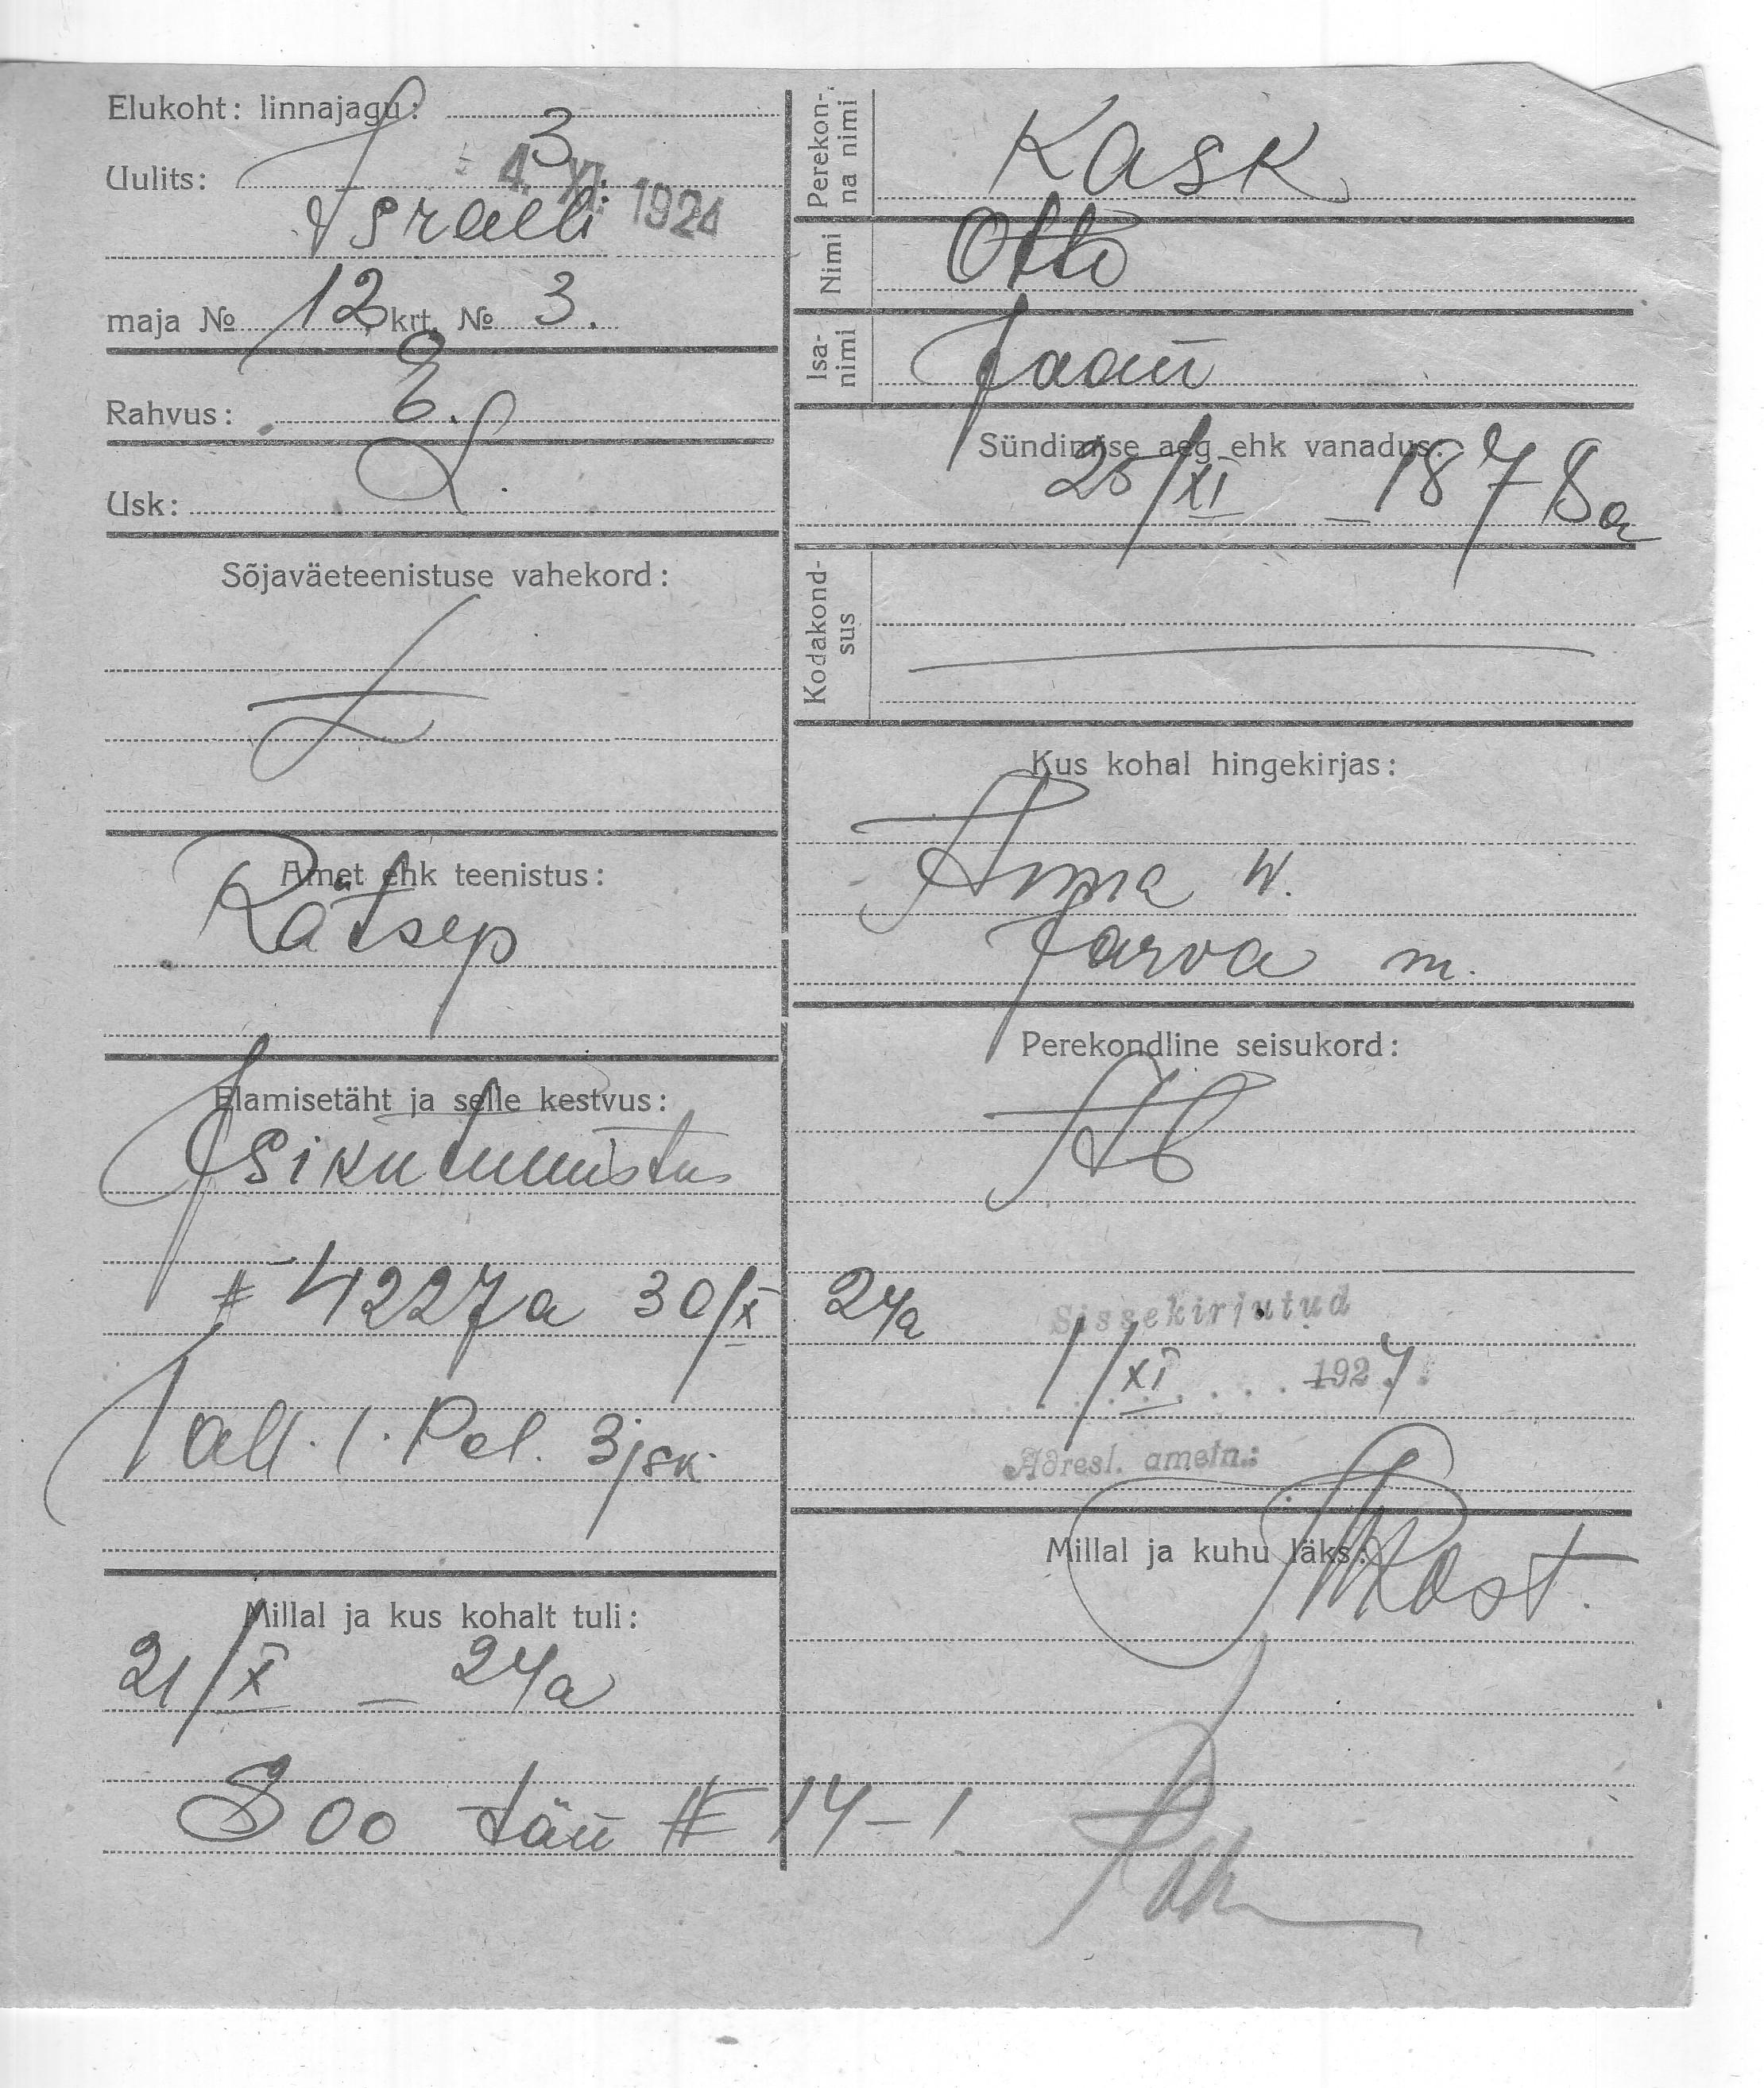 Elukoht: linnajagu: 3
4. XI. 1924
Uulits:
Israeli
maja № 12 krt. № 3.
Rahvus: E.
Usk: L.
Sõjaväeteenistuse vahekord:
Amet ehk teenistus:
Rätsep
Elamisetäht ja selle kestvus:
Isikutunnistus
# 4227a 30/X 24a
Tall. 1. Pol. 3 jsk.
Millal ja kus kohalt tuli:
21/X — 24a
Soo tän # 14-1
Perekon-
na nimi
Kask
Nimi
Otto
Isa-
nimi
Jaan
Sündimise aeg ehk vanadus:
25/XI — 1878a
Kodakond-
sus
Kus kohal hingekirjas:
Anna w.
Järva m.
Perekondline seisukord:
Ab
Sissekirjutud
1/XI 1924
Adresl. ametn.:
Millal ja kuhu läks: